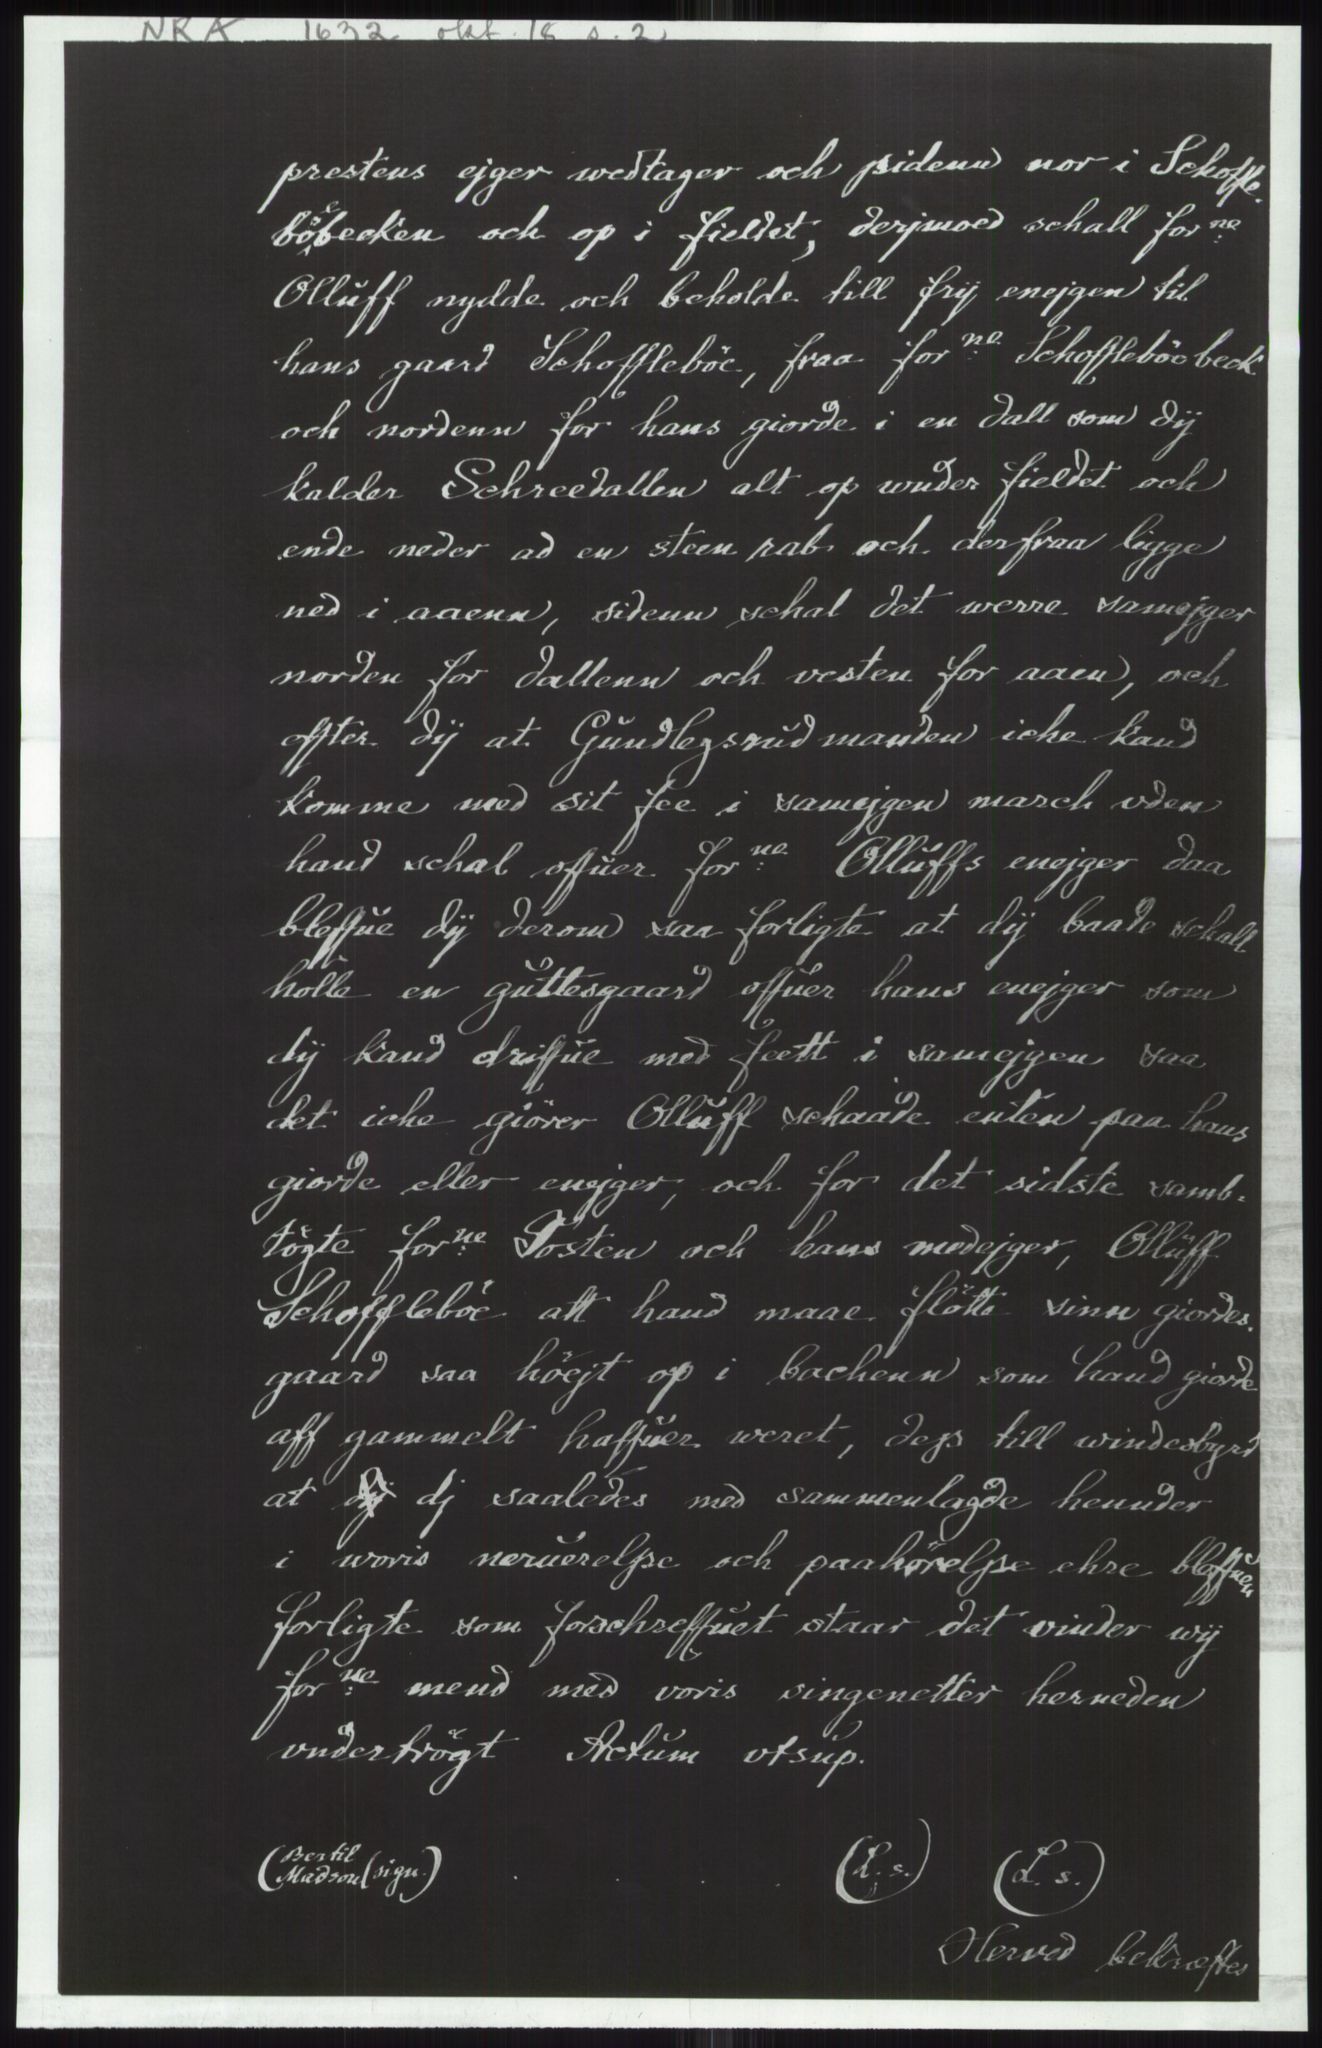 NRA 1632 okt. 18 s. 2
prestens ejger wedtager och sidenn nor i Schoffle-
böbecken och op i fieldet, derjmoed schall forne
Olluff nydde och beholde till frij enejgen til
hans gaard Schoffleböe, fraa forne Schoffleböe beck
och nordenn for hans giorde i en dall som dij
kalder Schreedallen alt op wnder fieldet och
ende neder ad en steen rab och derfraa ligge
ned i aaenn, sidenn schal det werre samejger
norden for dallenn och vesten for aaen, och
effter dij at Gundlegsrud manden iche kand
komme med sit fee i samejgen march vden
hand schal offuer forne Olluffs enejger daa
bleffue dij derom saa forligte at dij baade schall
holle en guttesgaard offuer hans enejger som
dij kand driffue med feett i samejgen saa
det iche giörer Olluff schaade enten paa hans
giorde eller enejger, och for det sidste samb-
tögte forne Tosten och hans medejger, Olluff
Schoffleböe att hand maae flötte sinn giordes-
gaard saa höejt op i bachenn som hand giorde
aff gammelt haffuer weret, dess till windesbyrd
at dj saaledes med sammenlagde hennder
i woris neruerelsse och paahörelsse ehre bleffuen
forligte som forschreffuet staar det vinder wij
forne mend med voris singenetter herneden
vndertrögt Actum vtsup.
(Bertil Madson (sign.) (L. s.) (L. s.)
Herved bekræftes